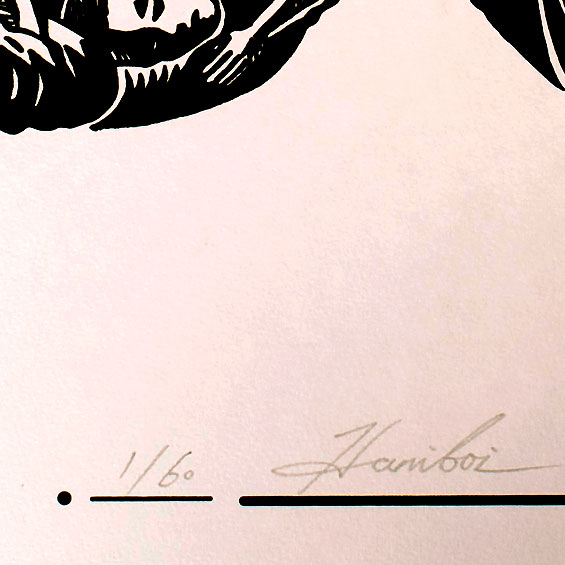 1/60 Haniboi